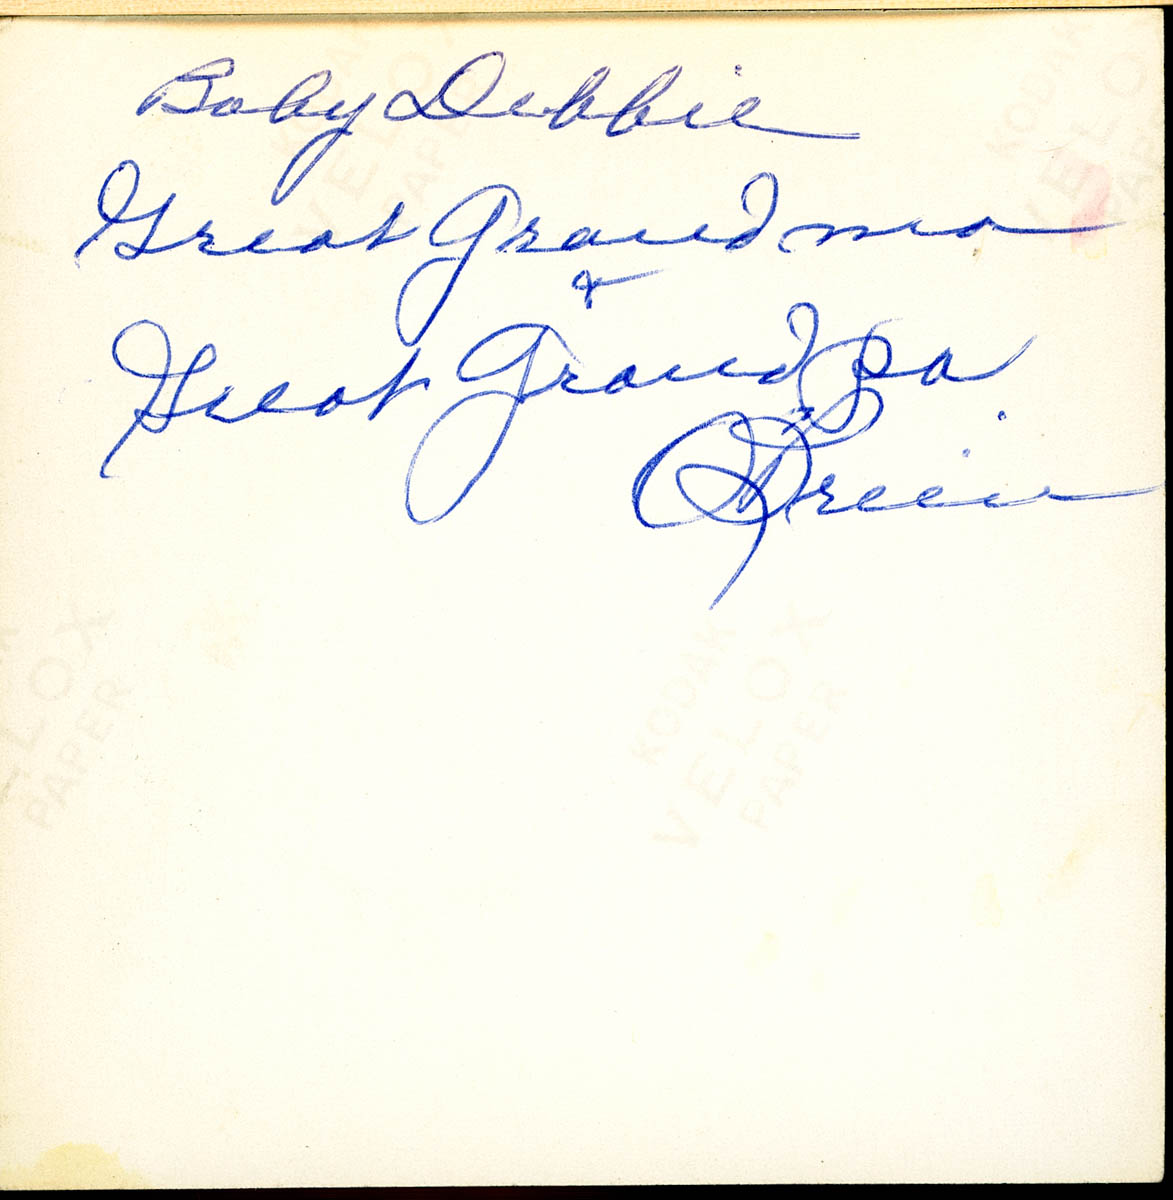 Baby Debbie
Great Grandma
+
Great Grandpa
KODAK
VELOX
PAPER
KODAK
VELOX
PAPER
VELOX
PAPER
KODAK
VELOX
PAPER